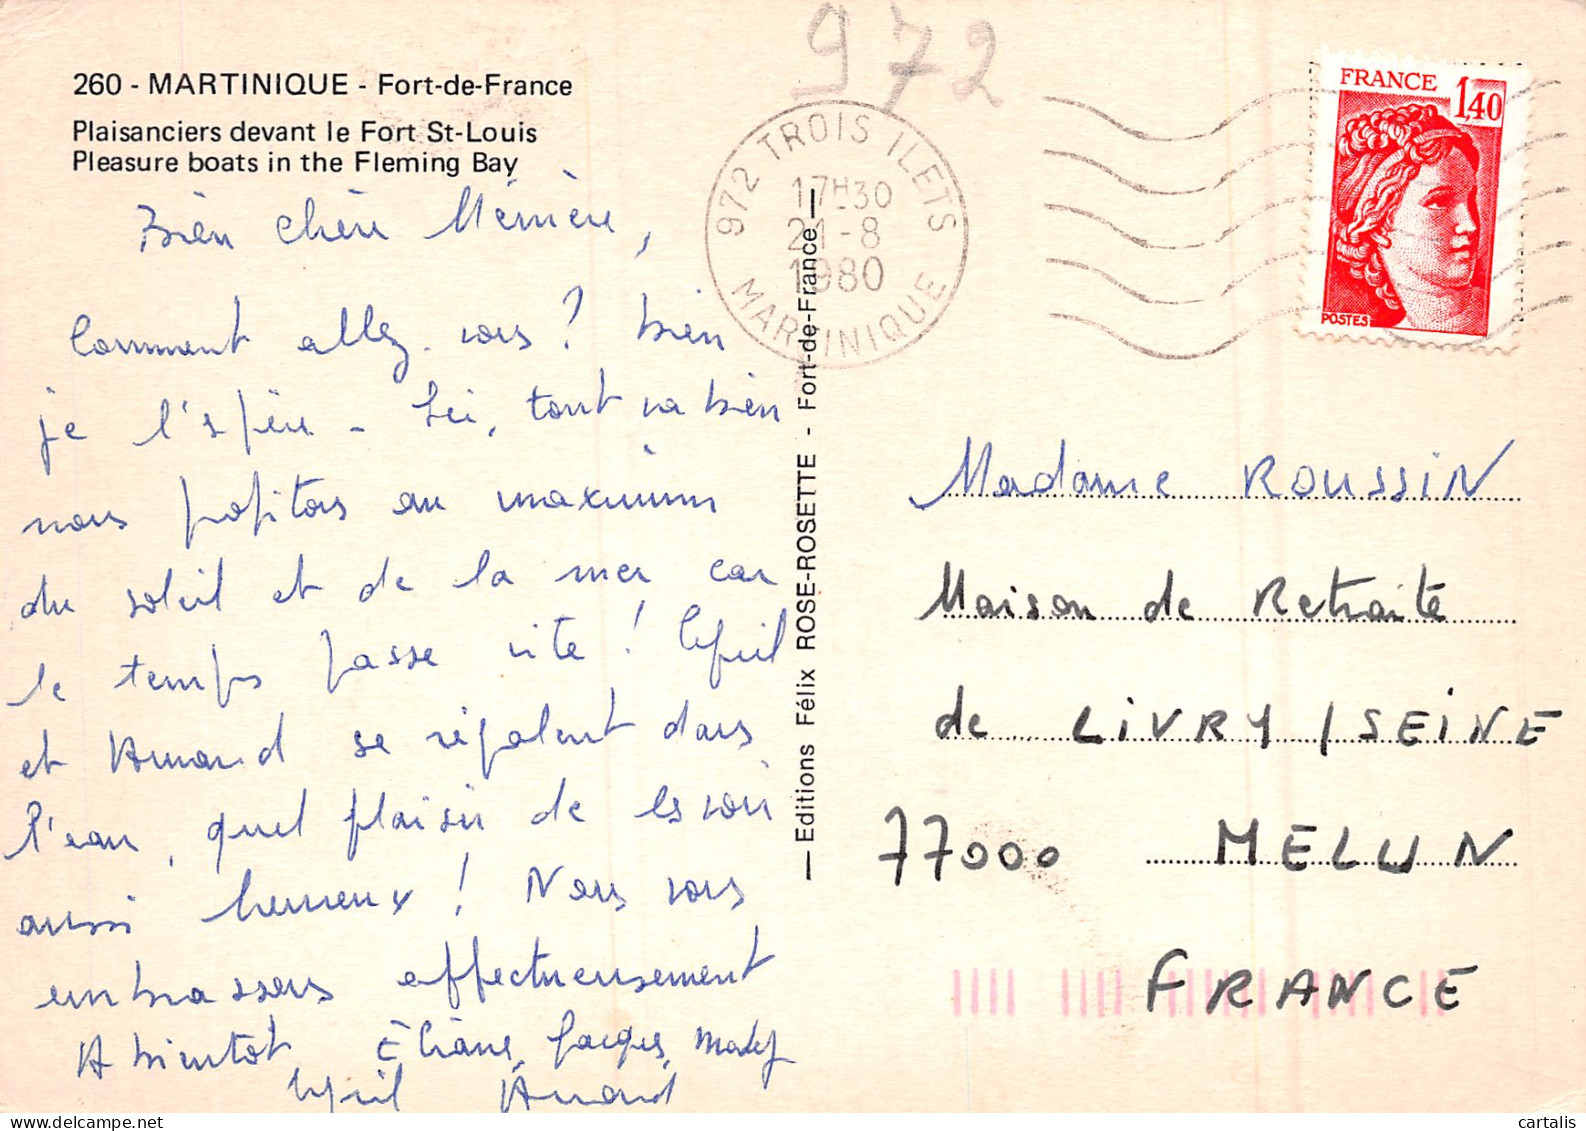 260 - MARTINIQUE - Fort-de-France
Plaisanciers devant le Fort St-Louis
Pleasure boats in the Fleming Bay
Bien chère Mémère,
Comment allez-vous? bien
je l'espère - Ici, tout va bien
nous profitons au maximum
du soleil et de la mer car
le temps passe vite! Cyril
et Arnaud se régalent dans
l'eau, quel plaisir de les voir
aussi heureux! Nous vous
embrassons affectueusement
A bientôt Éliane, Jacques,
Cyril Arnaud
Editions Félix ROSE-ROSETTE - Fort-de-France
972
972 TROIS ILETS
17H30
21-8
1980
MARTINIQUE
FRANCE
1,40
POSTES
Madame ROUSSIN
Maison de Retraite
de LIVRY/SEINE
77000 MELUN
FRANCE
cartalis